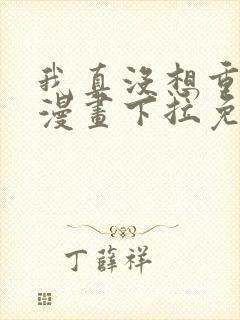 我真没想重
漫畫下拉免
丁薛祥